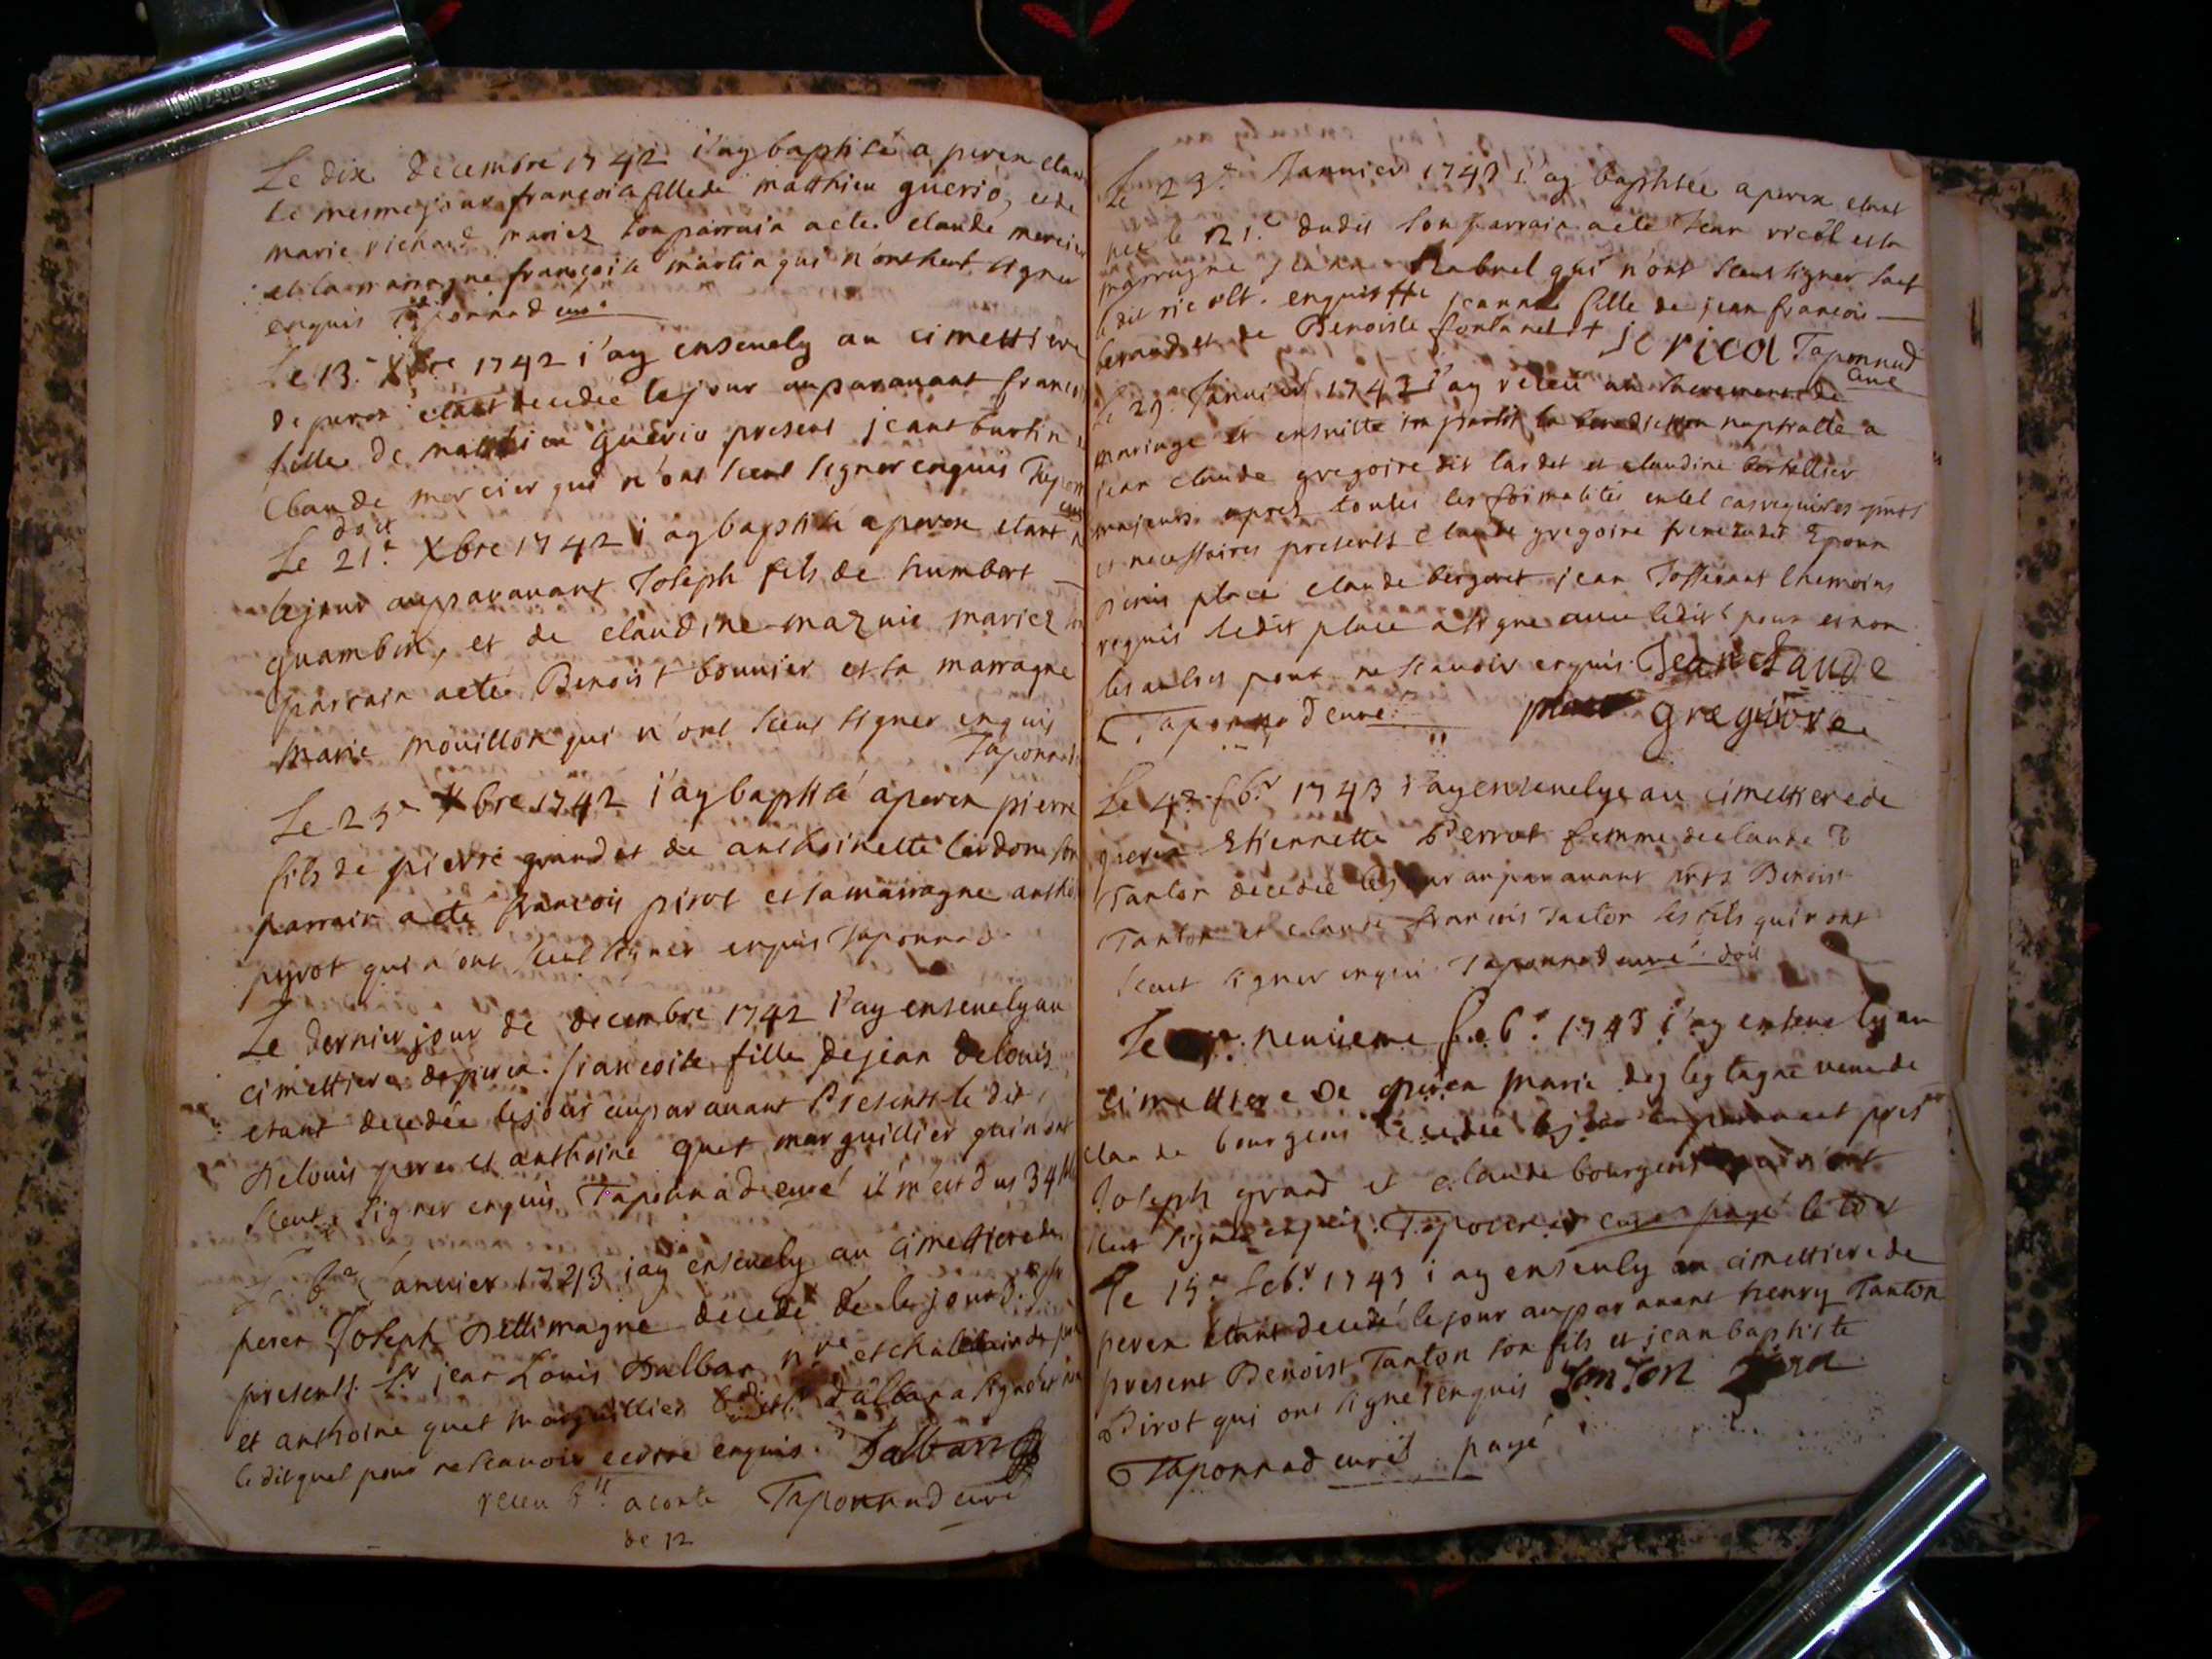 Le dix decembre 1742 i'ay baptisé a peren etant
le mesme jour françoisa fille de matthieu guerio, et de
marie richard mariez son parrain a eté claude mercier
et la marragne françoise martin qui n'ont sceut signer
enquis Taponnad curé
Le 13.e Xbre 1742 i'ay enseuely au cimettiere
de peren etant decedée le jour auparauant
fille de matthieu guerio present jean et burtin
Claude mercier qui n'ont sceut signer enquis
doit
Le 21.e Xbre 1742 i'ay baptisé a peren etant
le jour auparauant Joseph fils de humbert
quambin, et de claudine maznie mariez son
parrain a eté Benoist bouuier et sa marragne
marie mouillon qui n'ont sceut signer enquis
Taponnad
Le 25e Xbre 1742 i'ay baptisé a peren pierre
fils de pierre grand et de anthoinette lardon son
parrain a eté françois pirot et sa marragne
pyrot qui n'ont sceut signer enquis Taponnad
Le dernier jour de decembre 1742 i'ay enseuely au
cimettiere de peren francoise fille de jean delouis
etant decedée le jour auparauant Presents le dit
delouis pere et anthoine quet marguillier qui n'ont
sceut signer enquis Taponnad curé il m'est dus 34
Le 6e Januier 1743 i'ay enseuely au cimettiere de
peren Joseph dellimagne decedé le jour
presents Sr jean Louis Dalban et chatelain de
et anthoine quet marguillier dalban a signé et
le dit quet pour ne scauoir ecrire enquis. Dalban
receu 6 a conte Taponnad curé
de 12
Le 23e Januier 1743 i'ay baptisée a peren etant
née le 21.e dudit son parrain a eté Jean ricol et la
marragne Rabuel qui n'ont sceut signer sauf
le dit ricolt. enquis jeanne fille de jean francois
beraud et de Benoiste fontanel + je ricol Taponnad
curé
Le Januier 1743 i'ay receu au sacrement de
mariage et ensuitte imparti la benediction nuptialle a
jean claude gregoire dit lardet et claudine bertellier
majeurs apres toutes les formalités en tel cas requises
et necessaires presents Claude gregoire frere dudit Epoux
place claude bergeret jean themoins
requis ledit place a signé auec ledit epoux et non
les aultres pour ne scauoir enquis. Jean Claude
Taponnad curé place gregoire
Le 4e feb.r 1743 i'ay enseuelye au cimettiere de
peren Etiennette Perrot femme de claude
Tanton decedée le jour auparauant Benoist
Tanton et claude francois Tanton ses fils qui n'ont
sceut signer enquis Taponnad curé doit
Le neuuieme feb.r 1743 i'ay enseuely au
cimettiere de peren marie veuue de
claude bourgeois decedée le jour auparauant
Joseph grand et claude bourgeois qui n'ont
sceut signer enquis. Taponnad curé payé le tout
Le 15.e feb.r 1743 i'ay enseuly au cimettiere de
peren etant decedé le jour auparauant henry Tanton
present Benoist Tanton son fils et jean baptiste
Pirot qui ont signé enquis TonTon
Taponnad curé payé